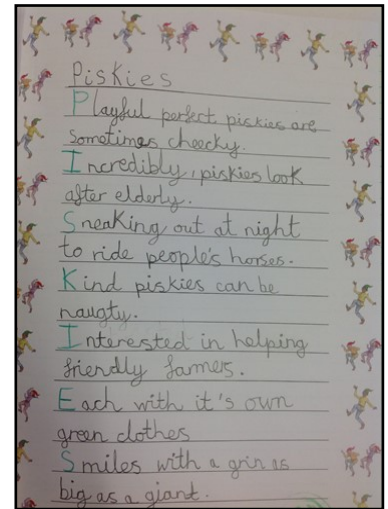 Piskies
Playful perfect piskies are
sometimes cheecky.
Incredibly, piskies look
after elderly.
Sneaking out at night
to ride people's horses.
Kind piskies can be
naugty.
Interested in helping
friendly farmers.
Each with it's own
green clothes
Smiles with a grin as
big as a giant.